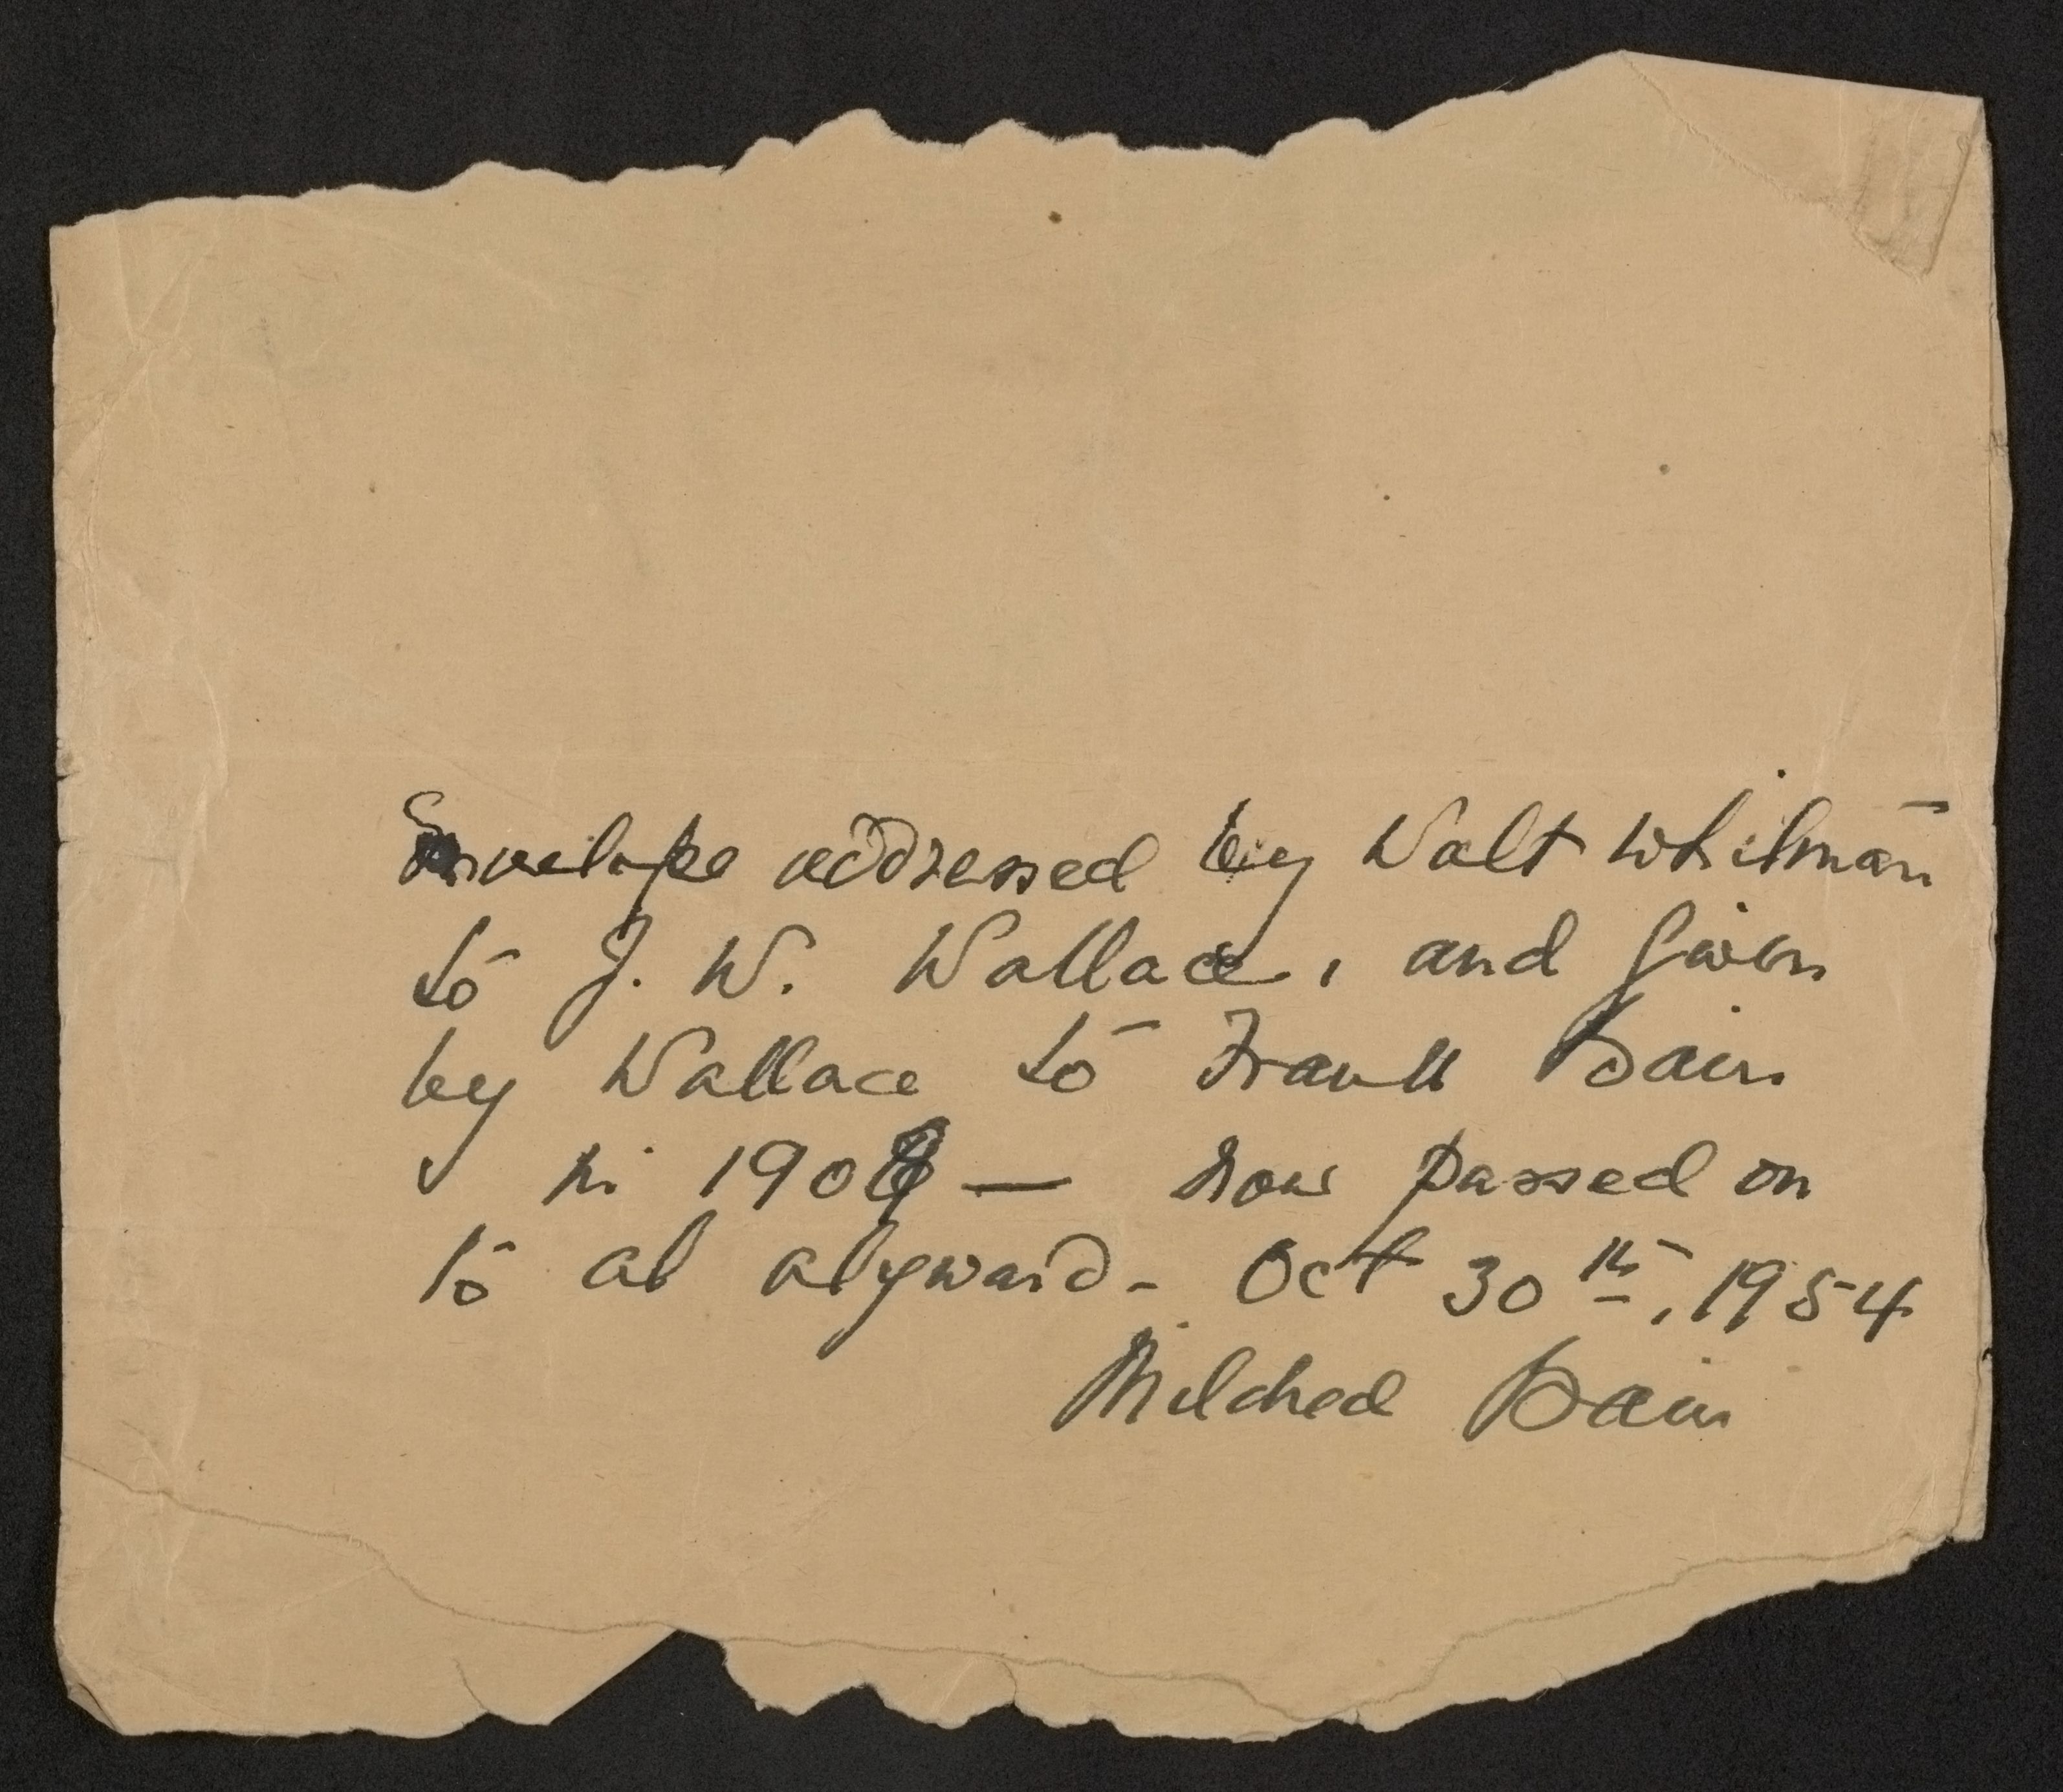 Envelope addressed by Walt Whitman
to J. W. Wallace, and given
by Wallace to Frank Bain
in 1908 — now passed on
to al alyward - Oct 30th, 1954
Mildred Bain